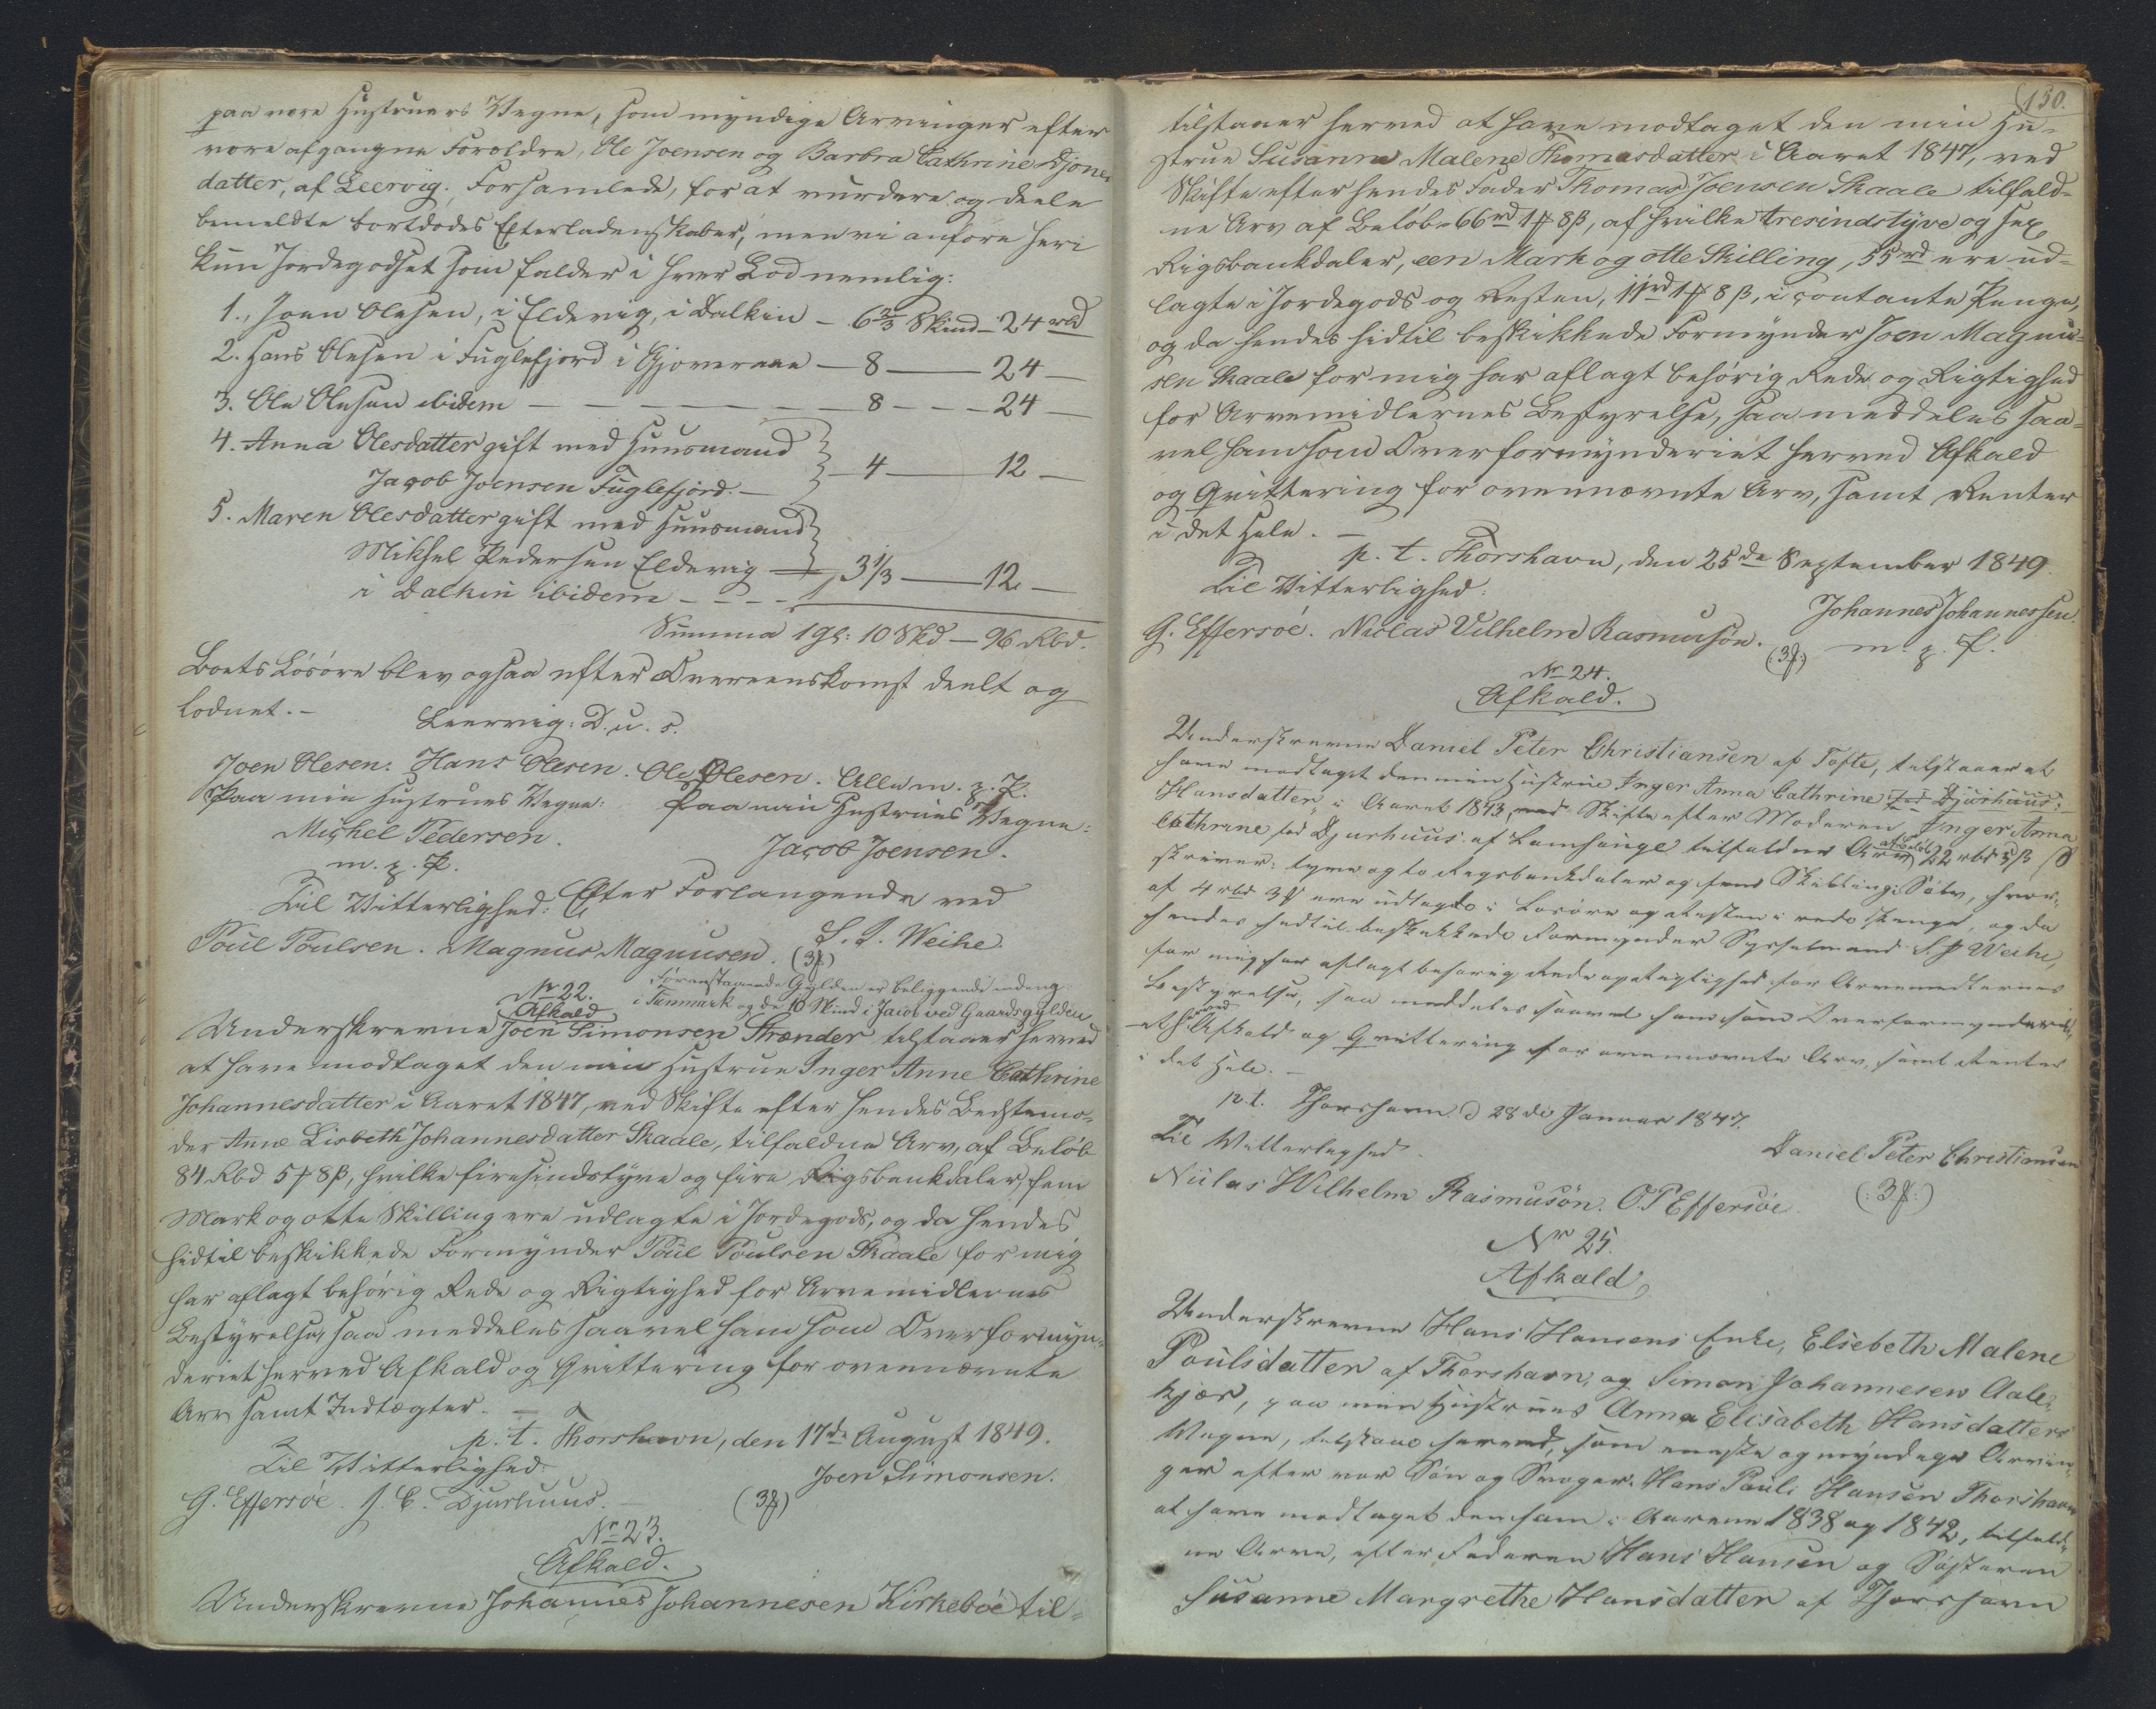 paa vore Hustruers Vegne, som myndige Arvinger efter
vore afgangne Forældre, Ole Joensen og Barbra Cathrine Djone
datter, af Leervig. Forsamlede, for at vurdere og deele
bemeldte bortdødes Efterladenskaber, men vi anføre heri
kun Jordegodset som falder i hver Lod nemlig:
1., Joen Olesen, i Eldevig, i Dalkin – 6 2/3 Skind – 24 rbd
2. Hans Olesen i Fuglefjord i Gjoveraae – 8 – 24 –
3. Ole Olesen ibidem – – – – – – – 8 – – – 24 –
4. Anna Olesdatter gift med Huusmand
Jacob Joensen Fuglefjord. – 4 – 12 –
5. Maren Olesdatter gift med Huusmand
Mikkel Pedersen Eldevig – 3 1/3 – 12 –
i Dalkin ibidem – – – –
Summa 1 Gl: 10 Skd – 96 Rbd.
Boets Løsøre blev ogsaa efter Overeenskomst deelt og
lodnet. –
Leervig: D. u. s.
Joen Olesen. Hans Olesen. Ole Olesen. Alle m. p. P.
Paa min Hustrues Vegne: Paa min Hustrues Vegne:
Michel Pedersen. Jacob Joensen.
m. p. P.
Til Vitterlighed: Efter Forlangende ved
Poul Poulsen. Magnus Magnusen. S. J. Weihe.
(3f)
Foranstaaende Gylden er beliggende
i Tunmark og de 10 Skind i Jacob ved Gaards gylden
No 22.
Afkald
Underskrevne Joen Simonsen Strænder tilstaaer herved
at have modtaget den min Hustrue Inger Anne Cathrine
Johannesdatter i Aaret 1847, ved Skifte efter hendes Bedstemo-
der Anne Lisbeth Johannesdatter Skaale, tilfaldne Arv, af Beløb
84 Rbd 5 # 8 ß, hvilke firesindstyve og fire Rigsbankdaler, fem
Mark og otte Skilling ere udlagte i Jordegods, og da hendes
hidtil beskikkede Formynder Poul Poulsen Skaale for mig
har aflagt behørig Rede og Rigtighed for Arvemidlernes
Bestyrelse, saa meddeles saavel ham som Overformyn-
deriet herved Afkald og Qvittering for ovennævnte
Arv samt Indtægter. –
p. t. Thorshavn, den 17de August 1849.
Til Vitterlighed
Joen Simonsen.
G. Effersøe. J. C. Djurhuus. –
(3f)
No 23.
Afkald.
Underskrevne Johannes Johannesen Kirkebøe til-
130.
tilstaaer herved at have modtaget den min Hu-
strue Susanne Malene Thomasdatter i Aaret 1847, ved
Skifte efter hendes Fader Thomas Joensen Skaale tilfald-
ne Arv af Beløb 66 rd 1 # 8 ß, af hvilke tresindstyve og sex
Rigsbankdaler, een Mark og otte Skilling, 55 rd ere ud-
lagte i Jordegods og Resten, 11 rd 1 # 8 ß, i contante Penge,
og da hendes hidtil beskikkede Formynder Joen Magnu-
sen Skaale for mig har aflagt behørig Rede og Rigtighed
for Arvemidlernes Bestyrelse, saa meddeles saa-
vel ham som Overformynderiet herved Afkald
og Qvittering for ovennævnte Arv, samt Renter
i det Hele. –
p. t. Thorshavn, den 25de September 1849.
Til Vitterlighed:
Johannes Johannessen
G. Effersøe. Niclas Vilhelm Rasmusøn. m. p. P.
(:3f:)
No 24.
Afkald.
Underskrevne Daniel Peter Christiansen af Tofte, tilstaaer at
have modtaget den min Hustrue Inger Anna Cathrine født Djurhuus:
Hansdatter, i Aaret 1843, ved Skifte efter Moderen Inger Anna
Cathrine fød Djurhuus af Lamhauge tilfaldne Arv af Beløb 22 rbd 5 ß
skriver: tyve og to Rigsbankdaler og fem Skilling Sølv, hvor-
af 4 rbd 3 # ere udlagte i Løsøre og Resten i rede Penge, og da
hendes hidtil beskikkede Formynder Sysselmand S. J Weihe,
for mig har aflagt behørig Rede og Rigtighed for Arvemidlernes
Bestyrelse, saa meddeles saavel ham som Overformynderi-
et herved Afkald og Qvittering for ovennævnte Arv, samt Renter
i det Hele. –
p. t. Thorshavn d 28de Januar 1847.
Til Vitterlighed.
Daniel Peter Christiansen
Niclas Wilhelm Rasmusøn. O. P Effersøe
(:3f:)
No 25.
Afkald
Underskrevne Hans Hansens Enke, Elsebeth Malene
Poulsdatter af Thorshavn, og Simon Johannesen Aale-
kjær, paa min Hustrues Anna Elisabeth Hansdatters
Vegne, tilstaae herved, som eneste og myndige Arvin-
ger efter vor Søn og Svoger: Hans Pauli Hansen Thorshavn
at have modtaget den ham i Aarene 1838 og 1842, tilfald-
ne Arv, efter Faderen Hans Hansen og Søsteren
Susanne Margrethe Hansdatter af Thorshavn